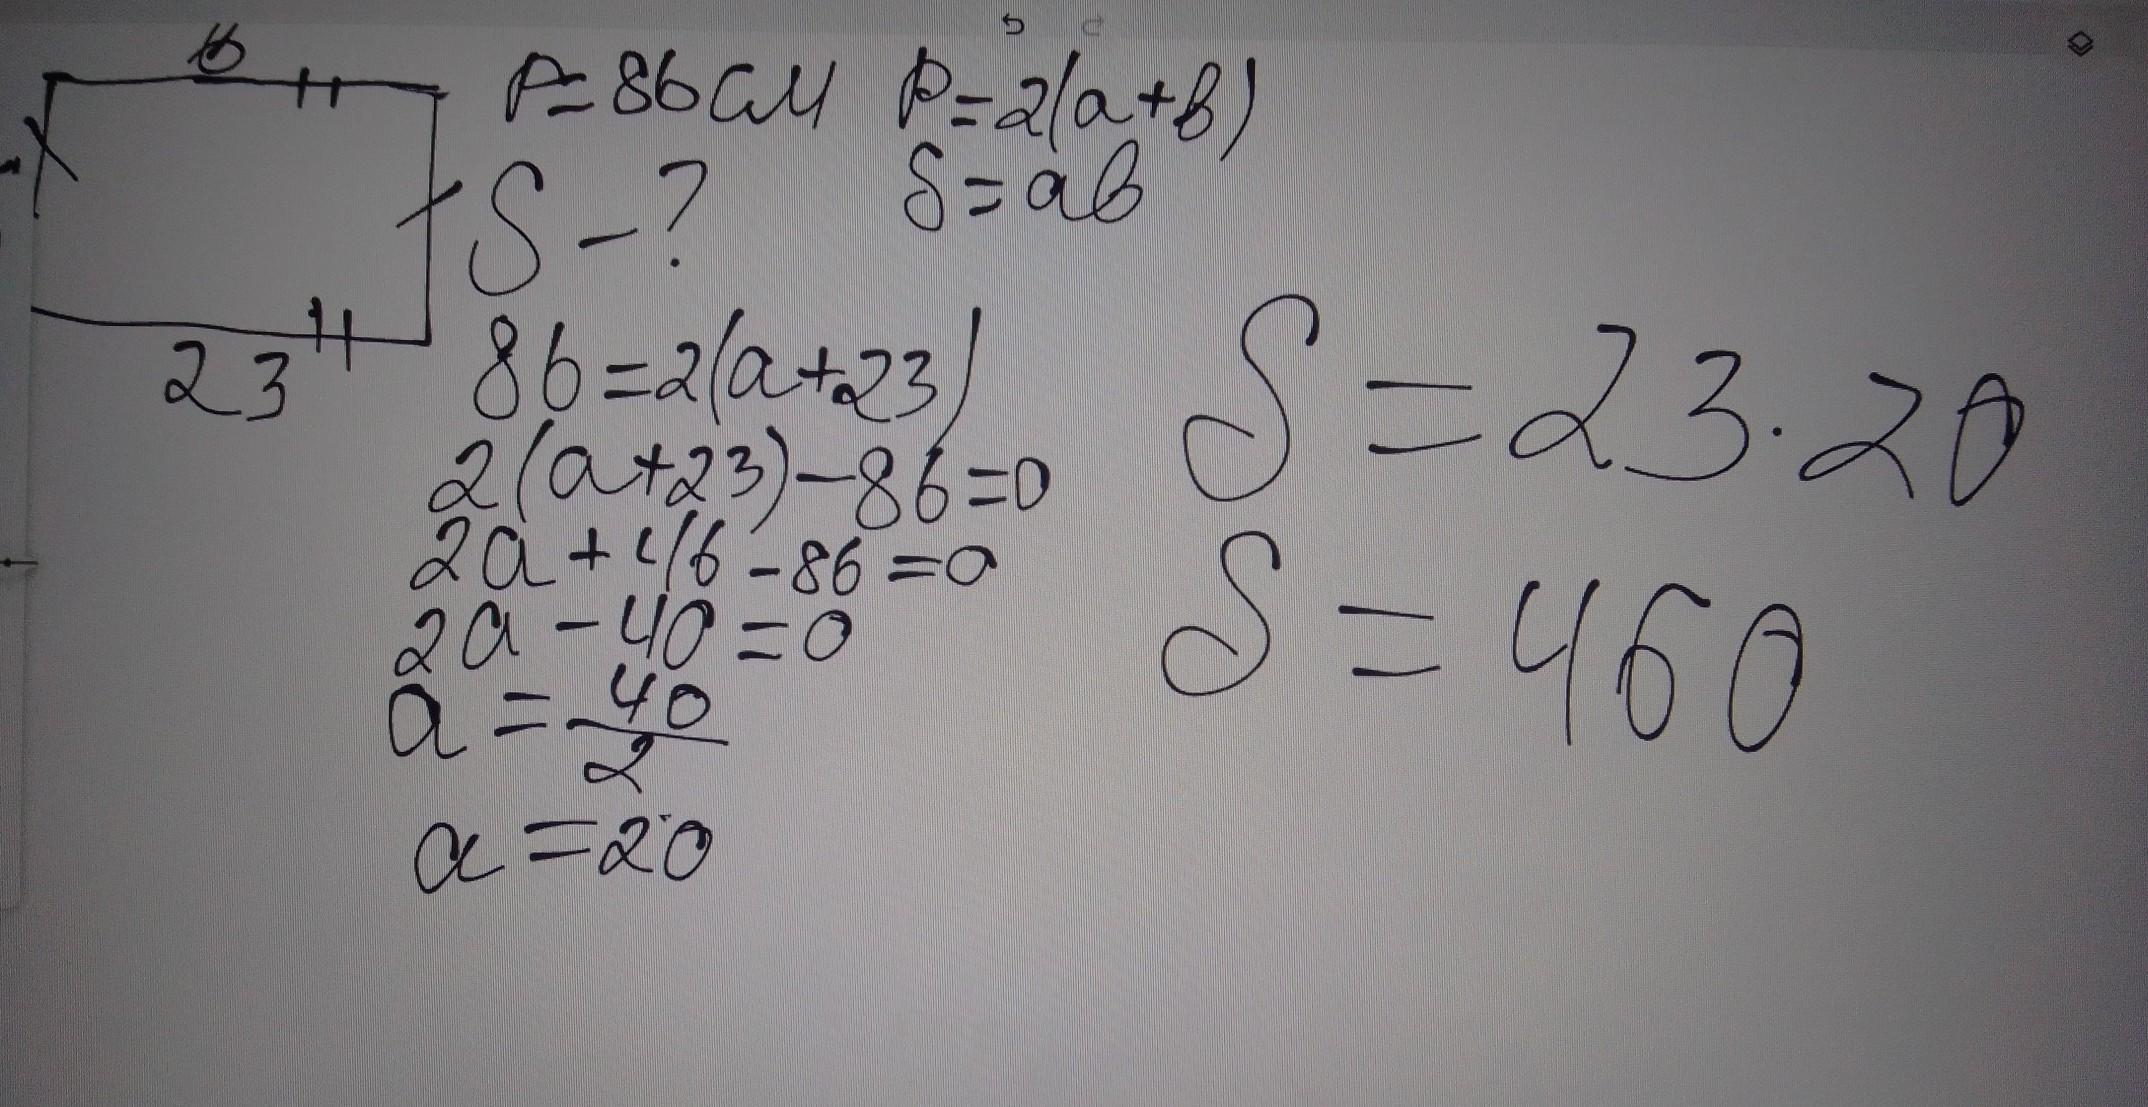 в
P=86 см P=2(a+в)
S-?
S=aв
23
86=2(a+23)
2(a+23)-86=0
2a+46-86=0
2a-40=0
a=40/2
a=20
S=23·20
S=460